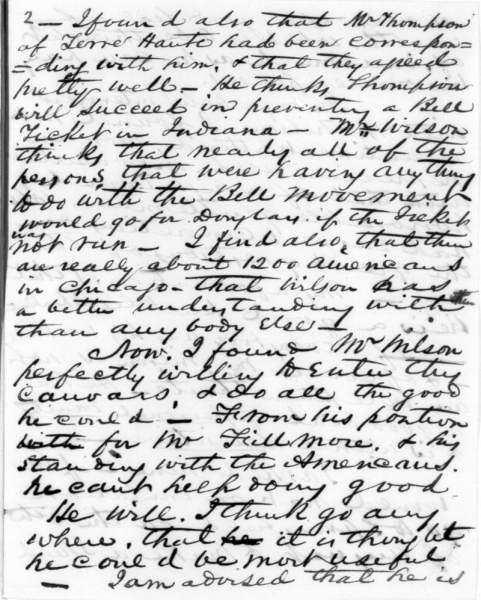 2 — I found also that Mr Thompson
of Terre Haute had been correspon=
=ding with him, & that they agreed
pretty well — He thinks Thompson
will succeed in preventing a Bell
Ticket in Indiana — Mr Wilson
thinks that nearly all of the
persons, that were having anything
to do with the Bell movement
would go for Douglas, if the Ticket
was
not run — I find also, that there
are really about 1200 Americans
in Chicago — that Wilson has
a better understanding with them
than any body else —
Now, I found Mr Wilson
perfectly willing to enter the
canvass, & do all the good
he could — From his position
with for Mr Fillmore, & his
standing with the Americans,
he cant help doing good
He will, I think go any
where, that he it is thought
he could be most useful
— I am advised that he is